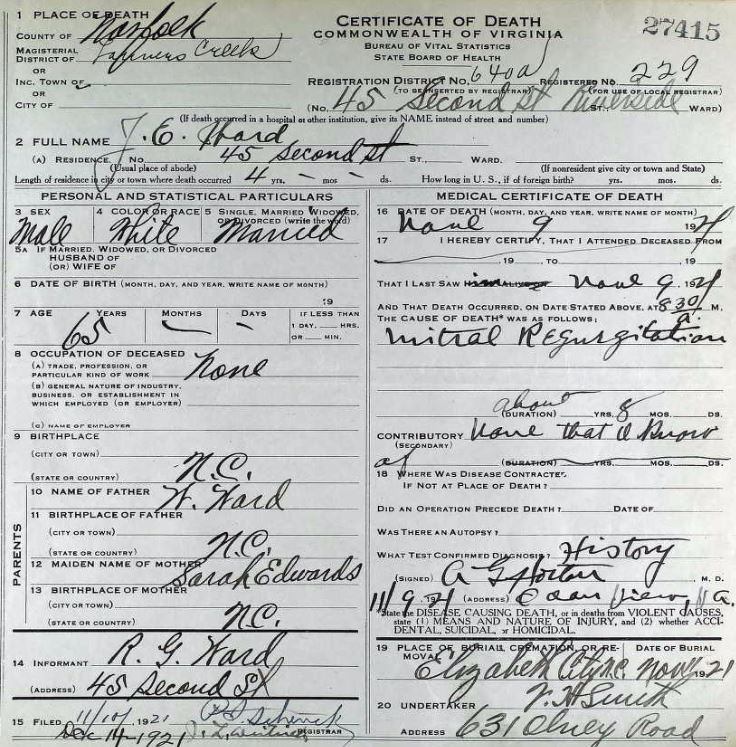 1 PLACE OF DEATH
COUNTY OF Norfolk
MAGISTERIAL DISTRICT OF Tanners Creek
OR
INC. TOWN OF
OR
CITY OF
CERTIFICATE OF DEATH
COMMONWEALTH OF VIRGINIA
BUREAU OF VITAL STATISTICS
STATE BOARD OF HEALTH
27415
REGISTRATION DISTRICT NO. 640a REGISTERED NO. 229
(TO BE INSERTED BY REGISTRAR) (FOR USE OF LOCAL REGISTRAR)
(No. 45 Second St Riverside ST. WARD)
(If death occurred in a hospital or other institution, give its NAME instead of street and number)
2 FULL NAME J. E. Ward
(A) RESIDENCE. No. 45 Second St ST., WARD.
(Usual place of abode) (If nonresident give city or town and State)
Length of residence in city or town where death occurred 4 yrs. – mos. – ds. How long in U. S., if of foreign birth? yrs. mos. ds.
PERSONAL AND STATISTICAL PARTICULARS
3 SEX 4 COLOR OR RACE 5 SINGLE, MARRIED WIDOWED, OR DIVORCED (write the word)
Male White Married
5A IF MARRIED, WIDOWED, OR DIVORCED
HUSBAND OF
(OR) WIFE OF
6 DATE OF BIRTH (MONTH, DAY, AND YEAR, WRITE NAME OF MONTH)
19
7 AGE YEARS MONTHS DAYS IF LESS THAN
65 – – 1 DAY, HRS.
OR MIN.
8 OCCUPATION OF DECEASED
(A) TRADE, PROFESSION, OR
PARTICULAR KIND OF WORK None
(B) GENERAL NATURE OF INDUSTRY,
BUSINESS, OR ESTABLISHMENT IN
WHICH EMPLOYED (OR EMPLOYER)
(C) NAME OF EMPLOYER
9 BIRTHPLACE
(CITY OR TOWN)
(STATE OR COUNTRY) N.C.
PARENTS
10 NAME OF FATHER W. Ward
11 BIRTHPLACE OF FATHER
(CITY OR TOWN)
(STATE OR COUNTRY) N.C.
12 MAIDEN NAME OF MOTHER Sarah Edwards
13 BIRTHPLACE OF MOTHER
(CITY OR TOWN)
(STATE OR COUNTRY) N.C.
14 INFORMANT R. G. Ward
(ADDRESS) 45 Second St
15 FILED 11/10, 1921
Dec 14-1921 REGISTRAR
MEDICAL CERTIFICATE OF DEATH
16 DATE OF DEATH (MONTH, DAY, AND YEAR, WRITE NAME OF MONTH)
9 1921
17 I HEREBY CERTIFY, THAT I ATTENDED DECEASED FROM
, 19 , TO , 19
THAT I LAST SAW 9 1921
AND THAT DEATH OCCURRED, ON DATE STATED ABOVE, AT 8 30/a. M.
THE CAUSE OF DEATH* WAS AS FOLLOWS:
Mitral Regurgitation
about
(DURATION) YRS. 8 MOS. DS.
CONTRIBUTORY None that I know
(SECONDARY)
of (DURATION) YRS. MOS. DS.
18 WHERE WAS DISEASE CONTRACTED
IF NOT AT PLACE OF DEATH?
DID AN OPERATION PRECEDE DEATH? DATE OF
WAS THERE AN AUTOPSY?
WHAT TEST CONFIRMED DIAGNOSIS? History
(SIGNED) A G Horton M. D.
11/9, 1921 (ADDRESS) Ocean View, Va.
*State the DISEASE CAUSING DEATH, or in deaths from VIOLENT CAUSES,
state (1) MEANS AND NATURE OF INJURY, and (2) whether ACCI-
DENTAL, SUICIDAL, or HOMICIDAL.
19 PLACE OF BURIAL, CREMATION, OR RE- DATE OF BURIAL
MOVAL Elizabeth City N.C. Nov 11 1921
20 UNDERTAKER V. H Smith
ADDRESS 631 Olney Road